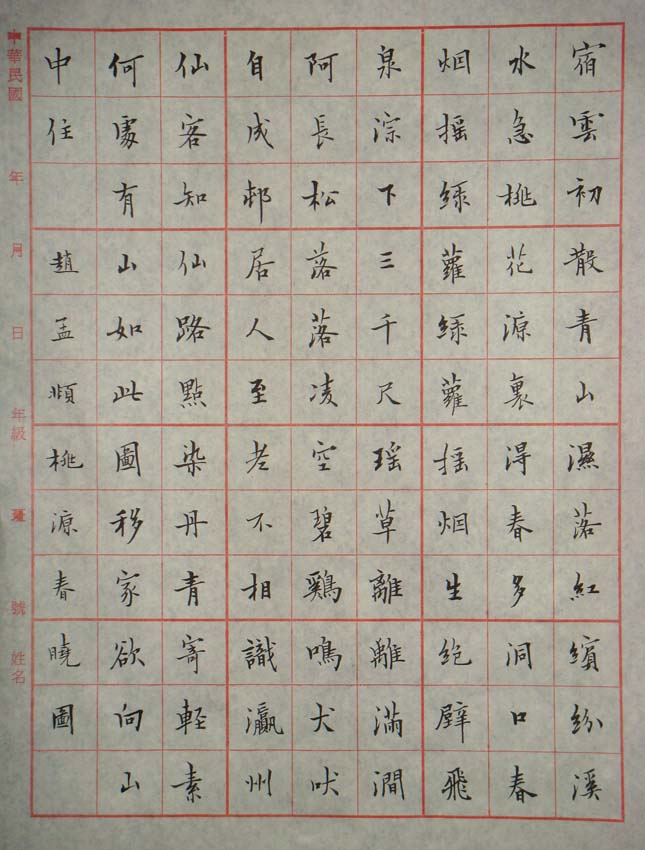 宿雲初散青山濕落紅繽紛溪
水急桃花源裏得春多洞口春
烟摇緑蘿緑蘿摇烟生绝壁飛
泉淙下三千尺瑶草離離滿澗
阿長松落落凌空碧鷄鳴犬吠
自成邨居人至老不相識瀛州
仙客知仙路點染丹青寄輕素
何處有山如此圖移家欲向山
中住 趙孟頫桃源春曉圖
中華民國 年 月 日 年級 號 姓名